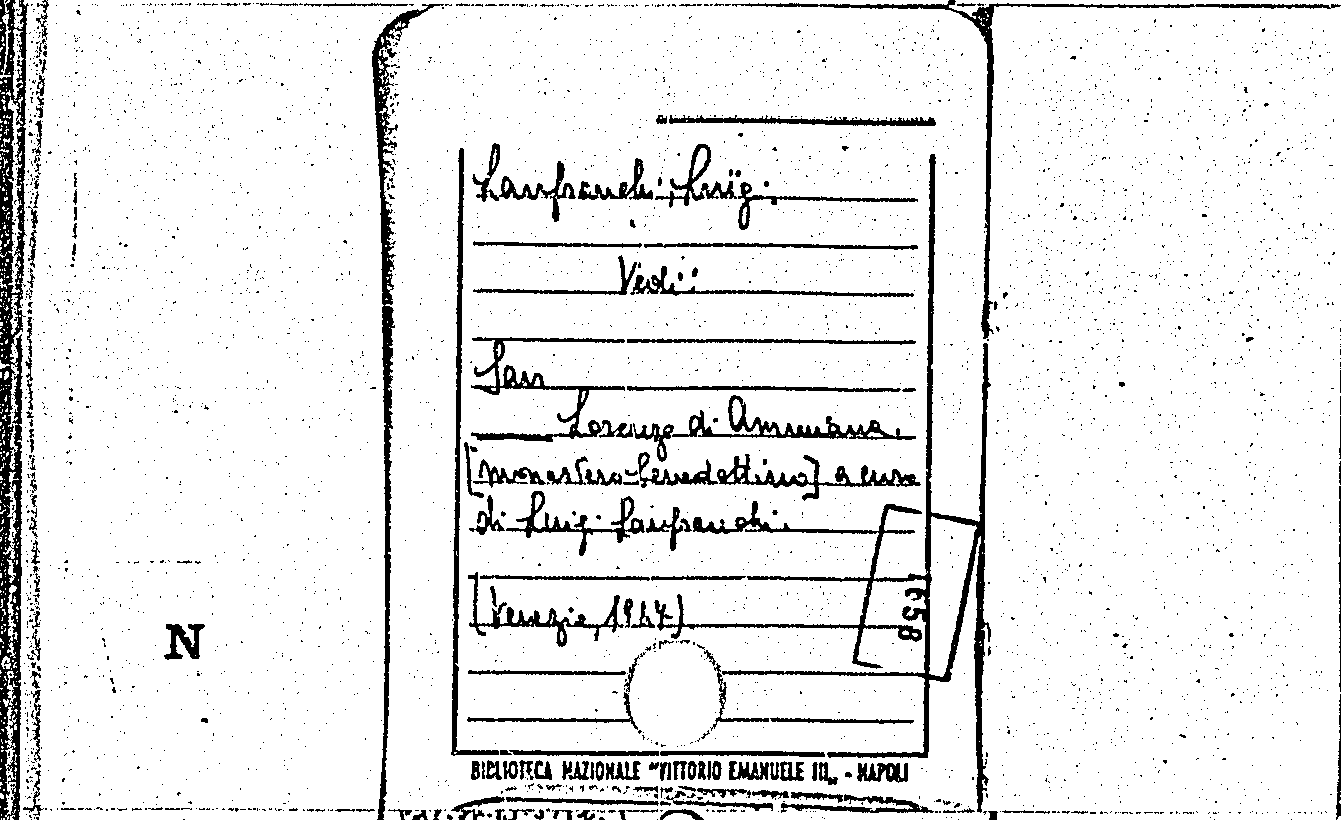 Lanfranchi, Luigi.
Vedi:
San
Lorenzo di Ammiana.
[monastero benedettino] a cura
di Luigi Lanfranchi.
(Venezia, 1947)
1658
N
BIBLIOTECA NAZIONALE "VITTORIO EMANUELE III„ - NAPOLI